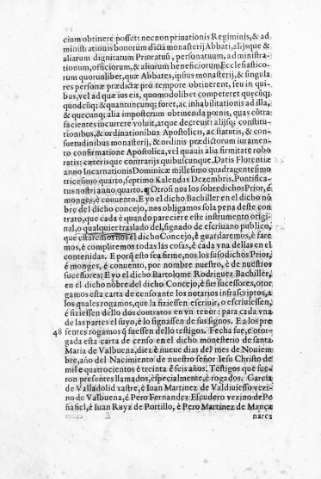 cium obtinere posset: nec non priuationis Regiminis, & ad
ministrationis bonorum dicti monasterij Abbati, alijsque &
aliarum dignitatum Prioratus, personatuum, administra-
tionum, officiorum, & aliorum beneficiorum Ecclesiastico-
rum quorumlibet, quæ Abbates, ipsius monasterij, & singula
res personæ prædictæ pro tempore obtinerent, seu in qui-
bus, vel ad quæ ius eis, quomodolibet competeret quęcūq;
quodcūq; & quantumcunq; foret, ac inhabilitationis ad illa,
& quęcunq; alia impostorum obtinenda pœnis, quas cōtra-
facientes incurrere voluit, atque decreuit: alijsq; constitu-
tionibus, & ordinationibus Apostolicis, ac statutis, & con-
suetudinibus monasterij, & ordinis prædictorum iuramen-
to confirmatione Apostolica, vel quauis alia firmitate robo
ratis: cæterisque contrarijs quibuscunque. Datis Florentiæ
anno Incarnationis Dominicæ millesimo quadragentesimo
tricesimo quarto, septimo Kalendas Decembris, Pontifica-
tus nostri anno quarto. ¶ Otrosi nos los sobredichos Prior, é
monges, é conuento. E yo el dicho Bachiller en el dicho nō
bre del dicho concejo, nos obligamos so la pena deste con
trato, que cada é quando pareciere este instrumento origi-
nal, o qualquier traslado del, signado de escriuano publico,
que estaremos nos el dicho Concejo, é guardaremos, é fare
mos, é compliremos todas las cosas, é cada vna dellas en el
contenidas. E porq̃ esto sea firme, nos los susodichos Prior,
é monges, é conuento, por nombre nuestro, é de nuestros
sucessores: E yo el dicho Bartolome Rodriguez Bachiller,
en el dicho nōbre del dicho Concejo, é sus sucessores, otor
gamos esta carta de censo ante los notarios infraescriptos, a
los quales rogamos, que la fiziessen escriuir, o escriuiessen,
é fiziessen dello dos contratos en vn tenor: para cada vna
de las partes el suyo, é lo signassen de sus signos. E a los pre
48 sentes rogamos q̃ fuessen dello testigos. Fecha fue, é otor-
gada esta carta de censo en el dicho monesterio de santa
Maria de Valbuena, diez é nueue dias del mes de Nouiem
bre, año del Nacimiento de nuestro señor Iesu Christo de
mil é quatrocientos é treinta é seis años. Testigos que fue-
ron presentes llamados, é especialmente, é rogados. Garcia
de Valladolid sastre, é Iuan Martinez de Valduiesso vezi-
no de Valbuena, é Pero Fernandez Escudero vezino de Pe
ñafiel, é Iuan Rayz de Portillo, é Pero Martinez de Mança
nares